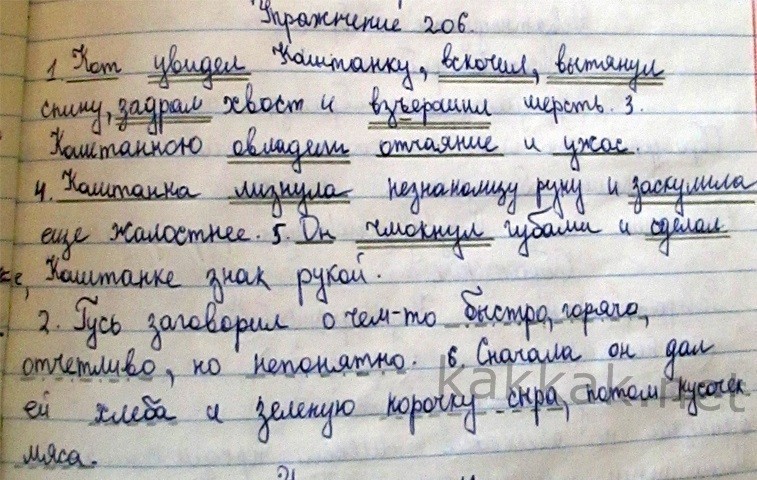 Упражнение 206.
1 Кот увидел Каштанку, вскочил, вытянул
спину, задрал хвост и взъерошил шерсть. 3.
Каштанкою овладели отчаяние и ужас.
4. Каштанка лизнула незнакомцу руку и заскулила
еще жалостнее. 5. Он чмокнул губами и сделал
Каштанке знак рукой.
2. Гусь заговорил о чем-то быстро, горячо,
отчетливо, но непонятно. 6. Сначала он дал
ей хлеба и зеленую корочку сыра, потом кусочек
мяса.
kakkak.net